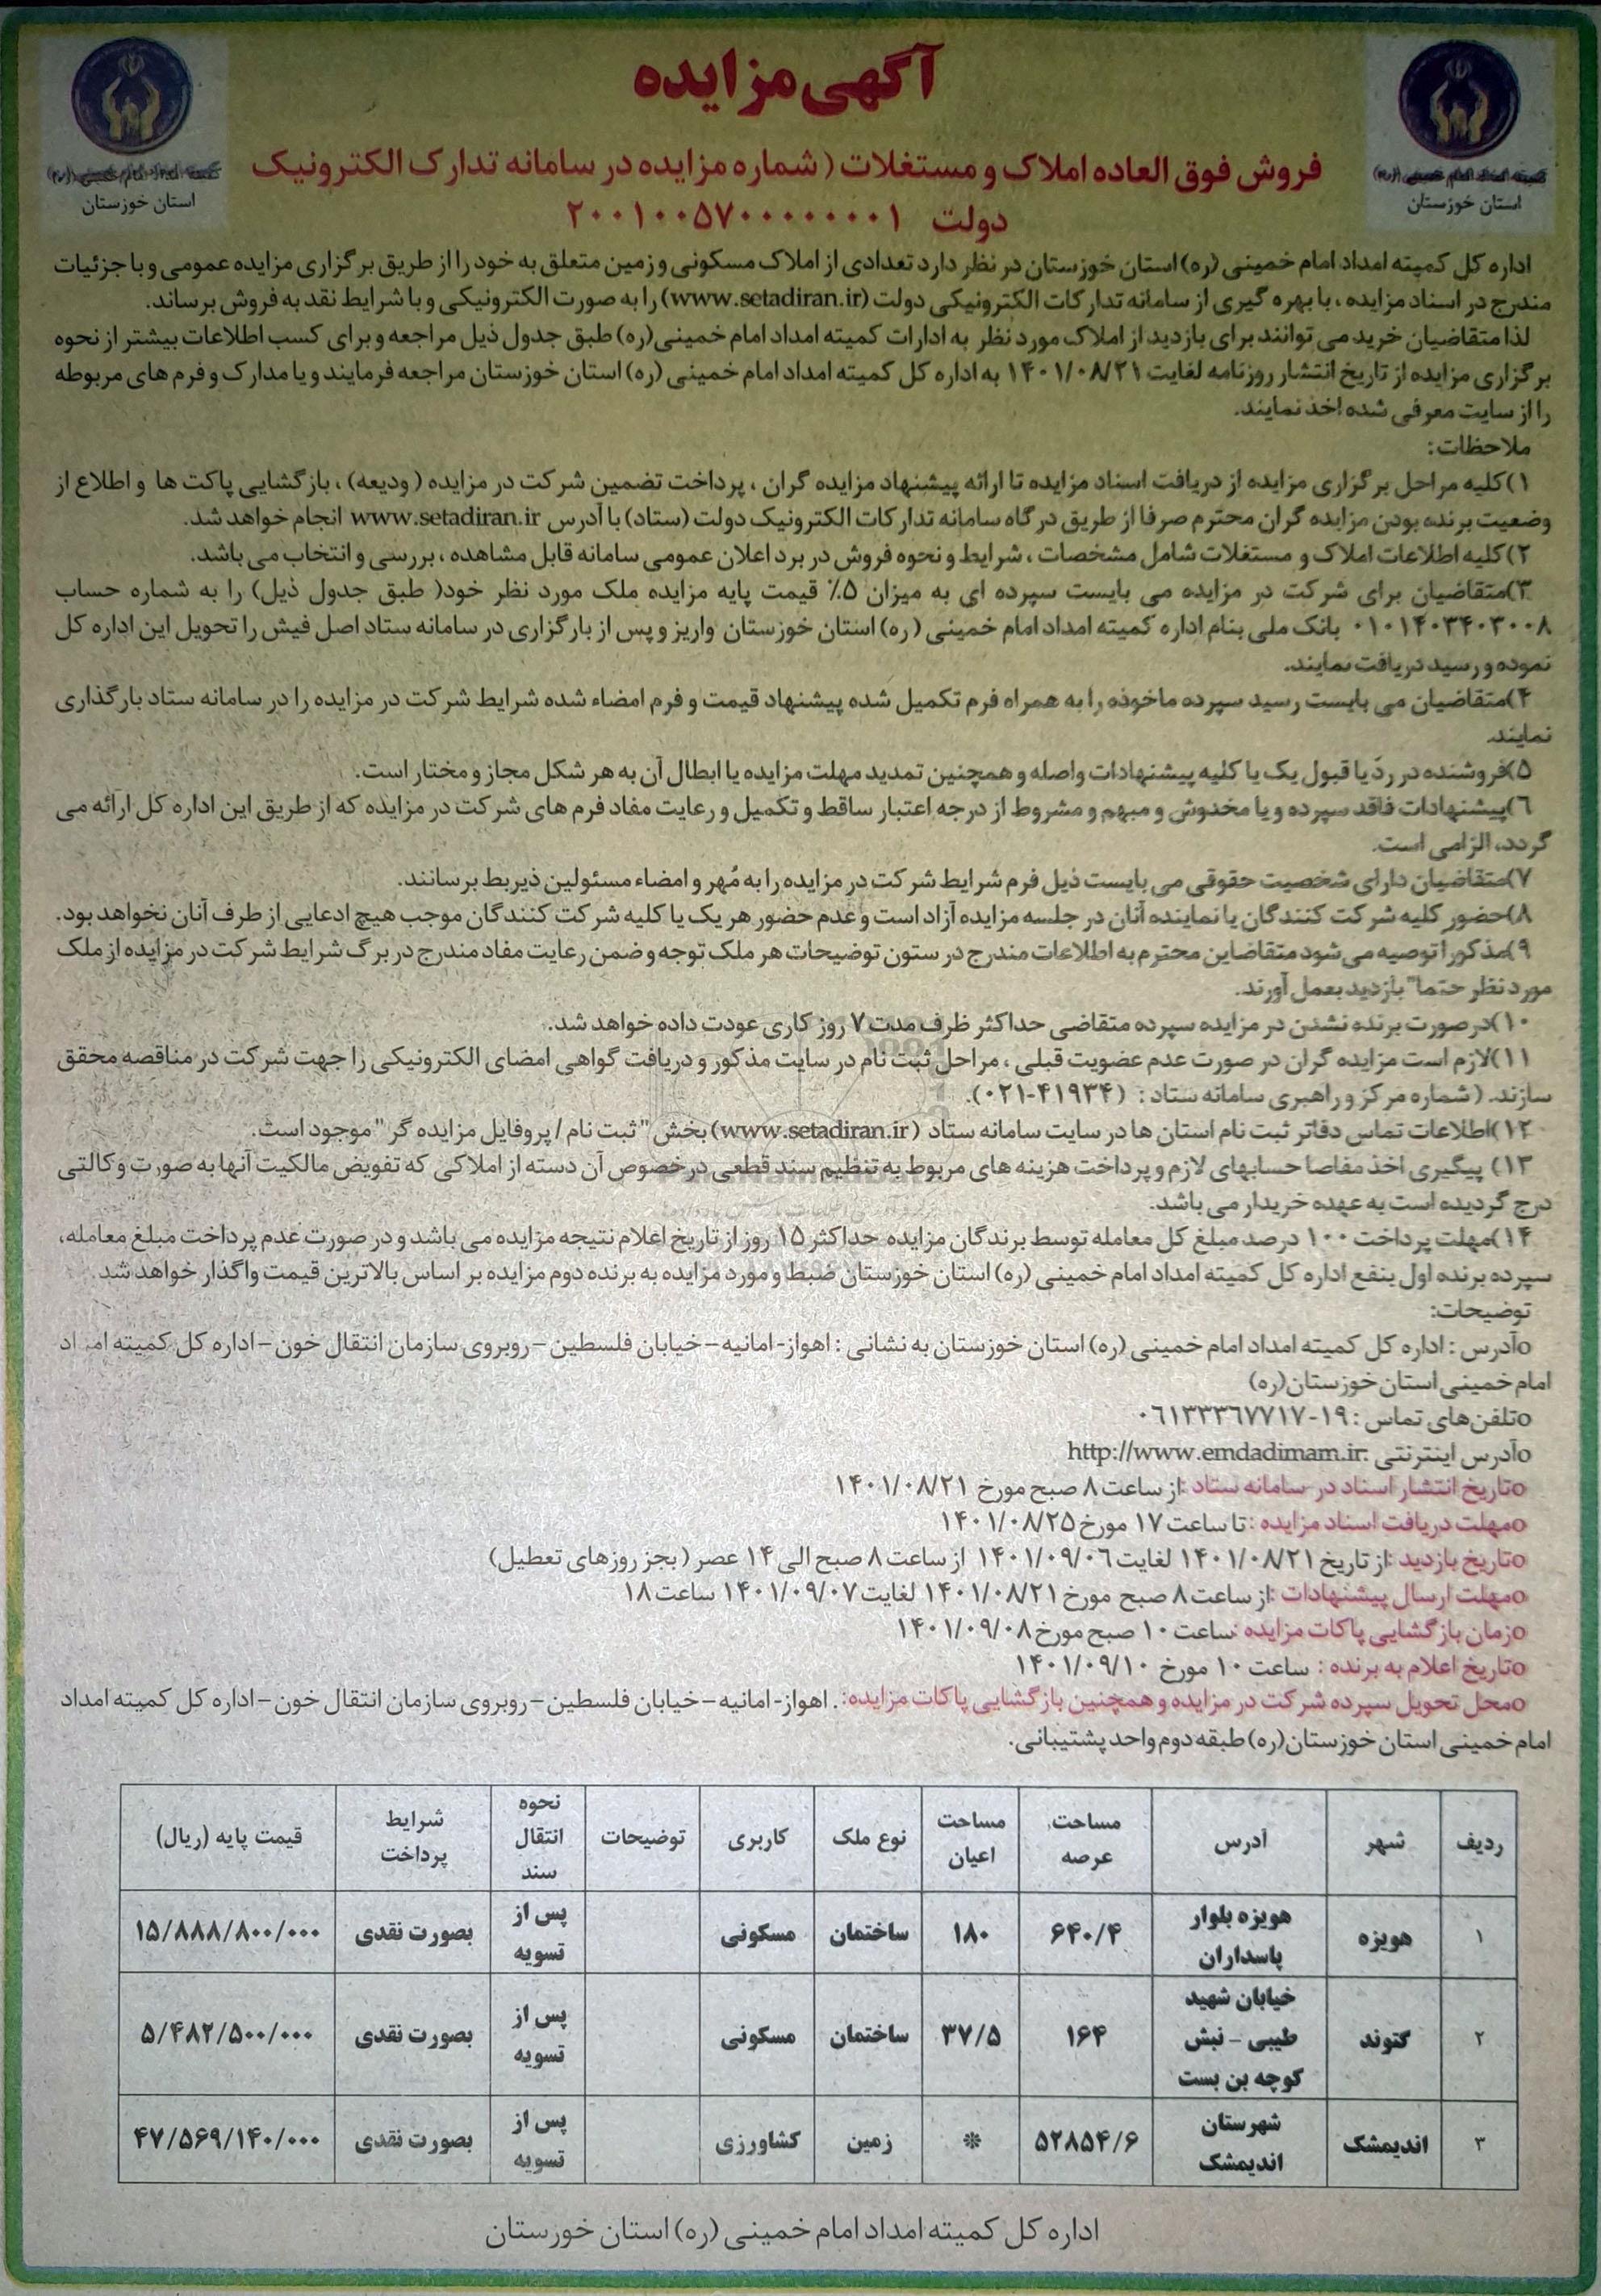 آگهی مزایده
فروش فوق العاده املاک و مستغلات ( شماره مزایده در سامانه تدارک الکترونیک
دولت ۲۰۰۱۰۰۵۷۰۰۰۰۰۰۰۱
استان خوزستان
استان خوزستان
اداره کل کمیته امداد امام خمینی (ره) استان خوزستان در نظر دارد تعدادی از املاک مسکونی و زمین متعلق به خود را از طریق برگزاری مزایده عمومی و با جزئیات
مندرج در اسناد مزایده ، با بهره گیری از سامانه تدارکات الکترونیکی دولت (www.setadiran.ir) را به صورت الکترونیکی و با شرایط نقد به فروش برساند.
لذا متقاضیان خرید می توانند برای بازدید از املاک مورد نظر به ادارات کمیته امداد امام خمینی(ره) طبق جدول ذیل مراجعه و برای کسب اطلاعات بیشتر از نحوه
برگزاری مزایده از تاریخ انتشار روزنامه لغایت ۱۴۰۱/۰۸/۲۱ به اداره کل کمیته امداد امام خمینی (ره) استان خوزستان مراجعه فرمایند و یا مدارک و فرم های مربوطه
را از سایت معرفی شده اخذ نمایند.
ملاحظات:
۱)کلیه مراحل برگزاری مزایده از دریافت اسناد مزایده تا ارائه پیشنهاد مزایده گران ، پرداخت تضمین شرکت در مزایده ( ودیعه) ، بازگشایی پاکت ها و اطلاع از
وضعیت برنده بودن مزایده گران محترم صرفا از طریق درگاه سامانه تدارکات الکترونیک دولت (ستاد) با آدرس www.setadiran.ir انجام خواهد شد.
۲)کلیه اطلاعات املاک و مستغلات شامل مشخصات ، شرایط و نحوه فروش در برد اعلان عمومی سامانه قابل مشاهده ، بررسی و انتخاب می باشد.
۳)متقاضیان برای شرکت در مزایده می بایست سپرده ای به میزان ۵٪ قیمت پایه مزایده ملک مورد نظر خود( طبق جدول ذیل) را به شماره حساب
۰۱۰۱۴۰۳۴۰۳۰۰۸ بانک ملی بنام اداره کمیته امداد امام خمینی ( ره) استان خوزستان واریز و پس از بارگزاری در سامانه ستاد اصل فیش را تحویل این اداره کل
نموده و رسید دریافت نمایند.
۴)متقاضیان می بایست رسید سپرده ماخوذه را به همراه فرم تکمیل شده پیشنهاد قیمت و فرم امضاء شده شرایط شرکت در مزایده را در سامانه ستاد بارگذاری
نمایند.
۵)فروشنده در ردّ یا قبول یک یا کلیه پیشنهادات واصله و همچنین تمدید مهلت مزایده یا ابطال آن به هر شکل مجاز و مختار است.
۶)پیشنهادات فاقد سپرده و یا مخدوش و مبهم و مشروط از درجه اعتبار ساقط و تکمیل و رعایت مفاد فرم های شرکت در مزایده که از طریق این اداره کل ارائه می
گردد، الزامی است.
۷)متقاضیان دارای شخصیت حقوقی می بایست ذیل فرم شرایط شرکت در مزایده را به مُهر و امضاء مسئولین ذیربط برسانند.
۸)حضور کلیه شرکت کنندگان یا نماینده آنان در جلسه مزایده آزاد است و عدم حضور هر یک یا کلیه شرکت کنندگان موجب هیچ ادعایی از طرف آنان نخواهد بود.
۹)مذکورا توصیه می شود متقاضاین محترم به اطلاعات مندرج در ستون توضیحات هر ملک توجه و ضمن رعایت مفاد مندرج در برگ شرایط شرکت در مزایده از ملک
مورد نظر حتما" بازدید بعمل آورند.
۱۰)درصورت برنده نشدن در مزایده سپرده متقاضی حداکثر ظرف مدت ۷ روز کاری عودت داده خواهد شد.
۱۱)لازم است مزایده گران در صورت عدم عضویت قبلی ، مراحل ثبت نام در سایت مذکور و دریافت گواهی امضای الکترونیکی را جهت شرکت در مناقصه محقق
سازند. ( شماره مرکز و راهبری سامانه ستاد : (۴۱۹۳۴-۰۲۱).
۱۲)اطلاعات تماس دفاتر ثبت نام استان ها در سایت سامانه ستاد (www.setadiran.ir) بخش "ثبت نام / پروفایل مزایده گر" موجود است.
۱۳) پیگیری اخذ مفاصا حسابهای لازم و پرداخت هزینه های مربوط به تنظیم سند قطعی درخصوص آن دسته از املاکی که تفویض مالکیت آنها به صورت وکالتی
درج گردیده است به عهده خریدار می باشد.
۱۴)مهلت پرداخت ۱۰۰ درصد مبلغ کل معامله توسط برندگان مزایده حداکثر ۱۵ روز از تاریخ اعلام نتیجه مزایده می باشد و در صورت عدم پرداخت مبلغ معامله،
سپرده برنده اول بنفع اداره کل کمیته امداد امام خمینی (ره) استان خوزستان ضبط و مورد مزایده به برنده دوم مزایده بر اساس بالاترین قیمت واگذار خواهد شد.
توضیحات:
oآدرس : اداره کل کمیته امداد امام خمینی (ره) استان خوزستان به نشانی : اهواز- امانیه – خیابان فلسطین – روبروی سازمان انتقال خون – اداره کل کمیته امداد
امام خمینی استان خوزستان(ره)
oتلفن های تماس : ۱۹-۰۶۱۳۳۳۶۷۷۱۷
oآدرس اینترنتی :http://www.emdadimam.ir
oتاریخ انتشار اسناد در سامانه ستاد :از ساعت ۸ صبح مورخ ۱۴۰۱/۰۸/۲۱
oمهلت دریافت اسناد مزایده :تا ساعت ۱۷ مورخ ۱۴۰۱/۰۸/۲۵
oتاریخ بازدید :از تاریخ ۱۴۰۱/۰۸/۲۱ لغایت ۱۴۰۱/۰۹/۰۶ از ساعت ۸ صبح الی ۱۴ عصر ( بجز روزهای تعطیل)
oمهلت ارسال پیشنهادات :از ساعت ۸ صبح مورخ ۱۴۰۱/۰۸/۲۱ لغایت ۱۴۰۱/۰۹/۰۷ ساعت ۱۸
oزمان بازگشایی پاکات مزایده :ساعت ۱۰ صبح مورخ ۱۴۰۱/۰۹/۰۸
oتاریخ اعلام به برنده : ساعت ۱۰ مورخ ۱۴۰۱/۰۹/۱۰
oمحل تحویل سپرده شرکت در مزایده و همچنین بازگشایی پاکات مزایده: . اهواز- امانیه – خیابان فلسطین – روبروی سازمان انتقال خون – اداره کل کمیته امداد
امام خمینی استان خوزستان(ره) طبقه دوم واحد پشتیبانی.
ردیف شهر آدرس مساحت عرصه مساحت اعیان نوع ملک کاربری توضیحات نحوه انتقال سند شرایط پرداخت قیمت پایه (ریال)
۱ هویزه هویزه بلوار پاسداران ۶۴۰/۴ ۱۸۰ ساختمان مسکونی پس از تسویه بصورت نقدی ۱۵/۸۸۸/۸۰۰/۰۰۰
۲ گتوند خیابان شهید طیبی – نبش کوچه بن بست ۱۶۴ ۳۷/۵ ساختمان مسکونی پس از تسویه بصورت نقدی ۵/۴۸۲/۵۰۰/۰۰۰
۳ اندیمشک شهرستان اندیمشک ۵۲۸۵۴/۶ * زمین کشاورزی پس از تسویه بصورت نقدی ۴۷/۵۶۹/۱۴۰/۰۰۰
اداره کل کمیته امداد امام خمینی (ره) استان خوزستان